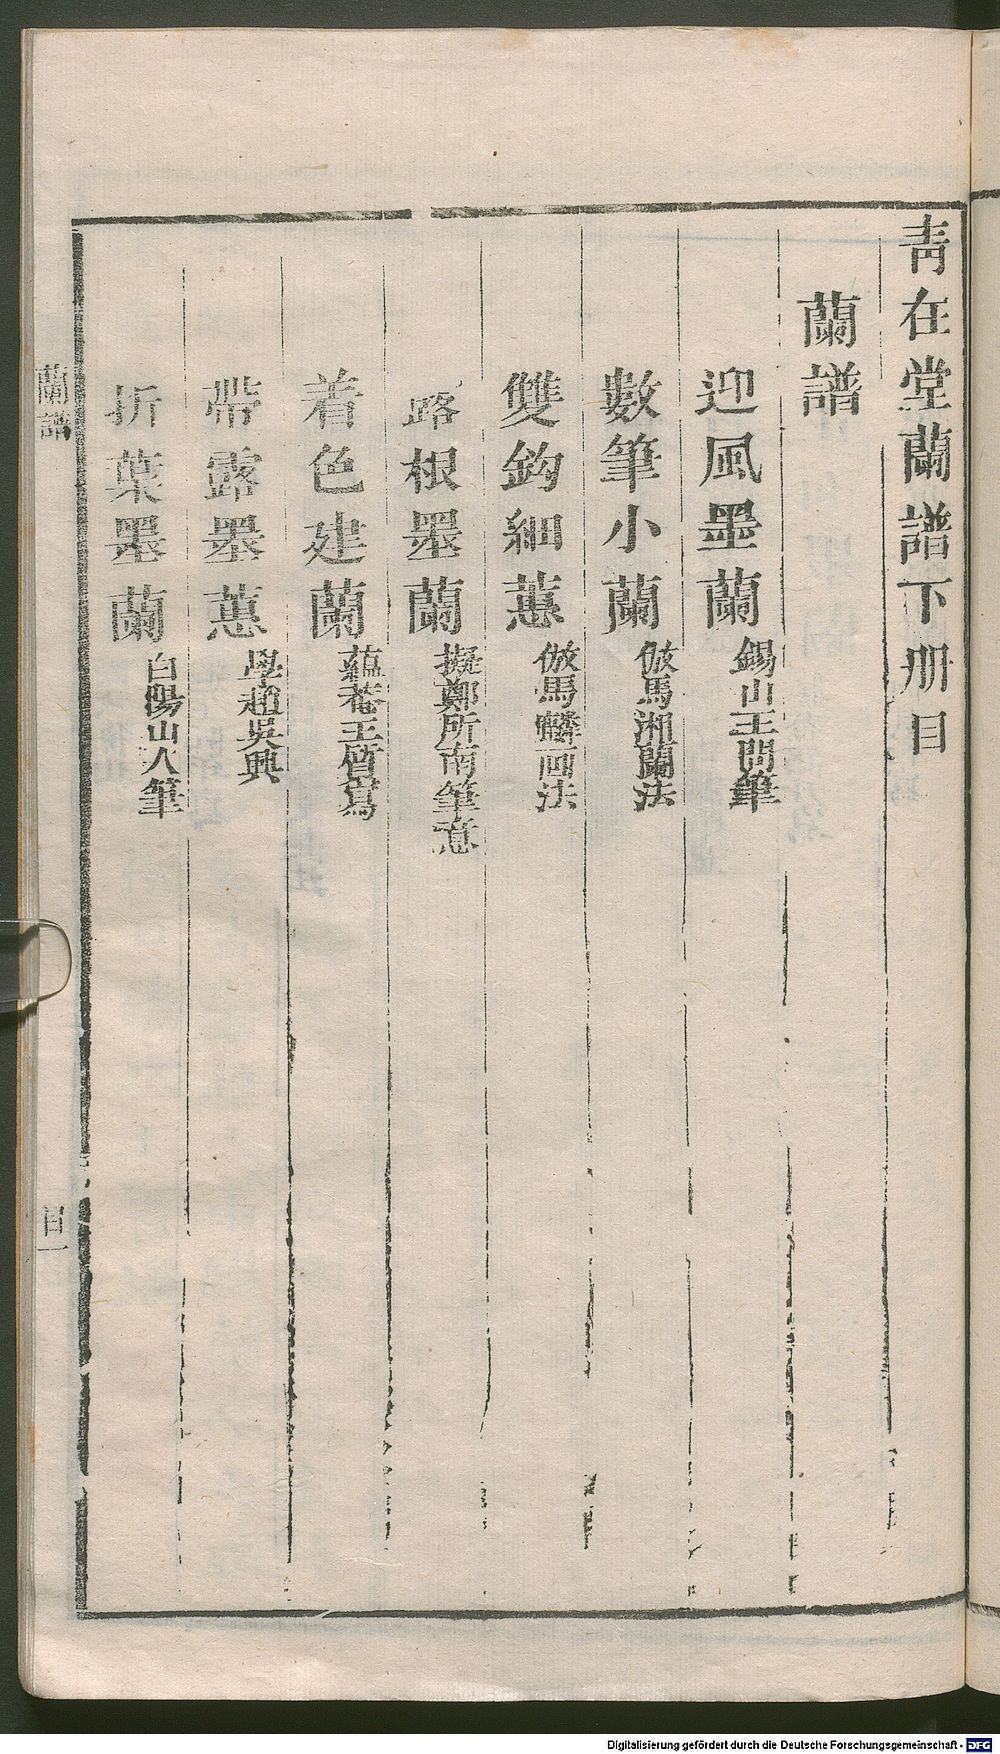 青在堂蘭譜下册目
蘭譜
迎風墨蘭 錫山王問筆
數筆小蘭 倣馬湘蘭法
雙鈎細蕙 倣馬麟画法
露根墨蘭 擬鄭所南筆意
着色建蘭 蘊菴王質寫
帶露墨蕙 學趙吳興
折葉墨蘭 白陽山人筆
蘭譜
目一
Digitalisierung gefördert durch die Deutsche Forschungsgemeinschaft - DFG